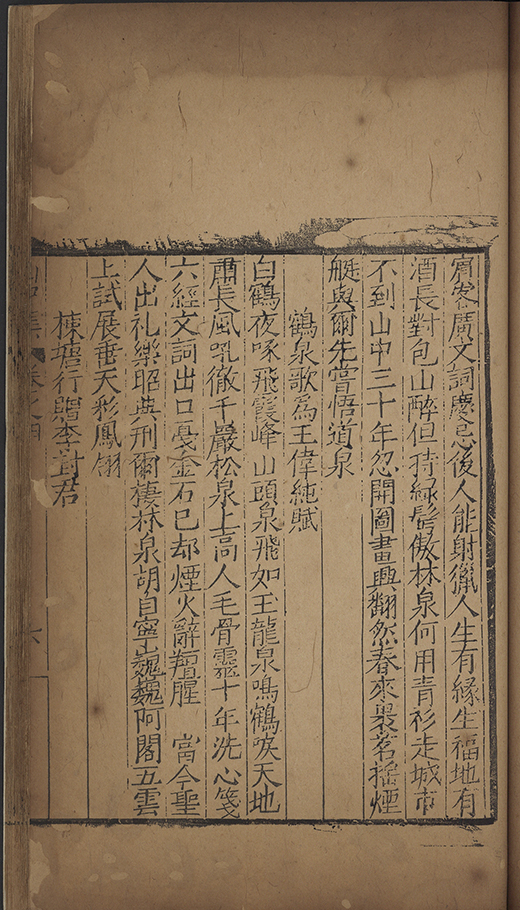 賓客廣文詞慶忌後人能射獵人生有緣生福地有
酒長對包山醉但持緑髩傲林泉何用青衫走城市
不到山中三十年忽開圖畫興翻然春來裹茗搖煙
艇與爾先嘗悟道泉
鶴泉歌爲王偉純賦
白鶴夜啄飛霞峰山頭泉飛如玉龍泉鳴鶴唳天地
肅長風吼徹千巖松泉上高人毛骨靈十年洗心箋
六經文詞出口戛金石已却煙火辭羶腥當今聖
人出礼樂昭典刑爾棲林泉胡自寧巍巍阿閣五雲
上試展垂天彩鳳翎
楝塘行贈李封君
集
卷之四
六